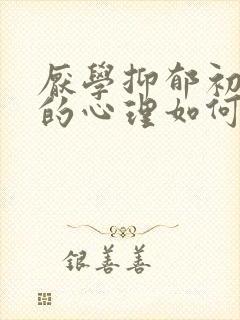 厌學抑郁初
的心理如何
银善善